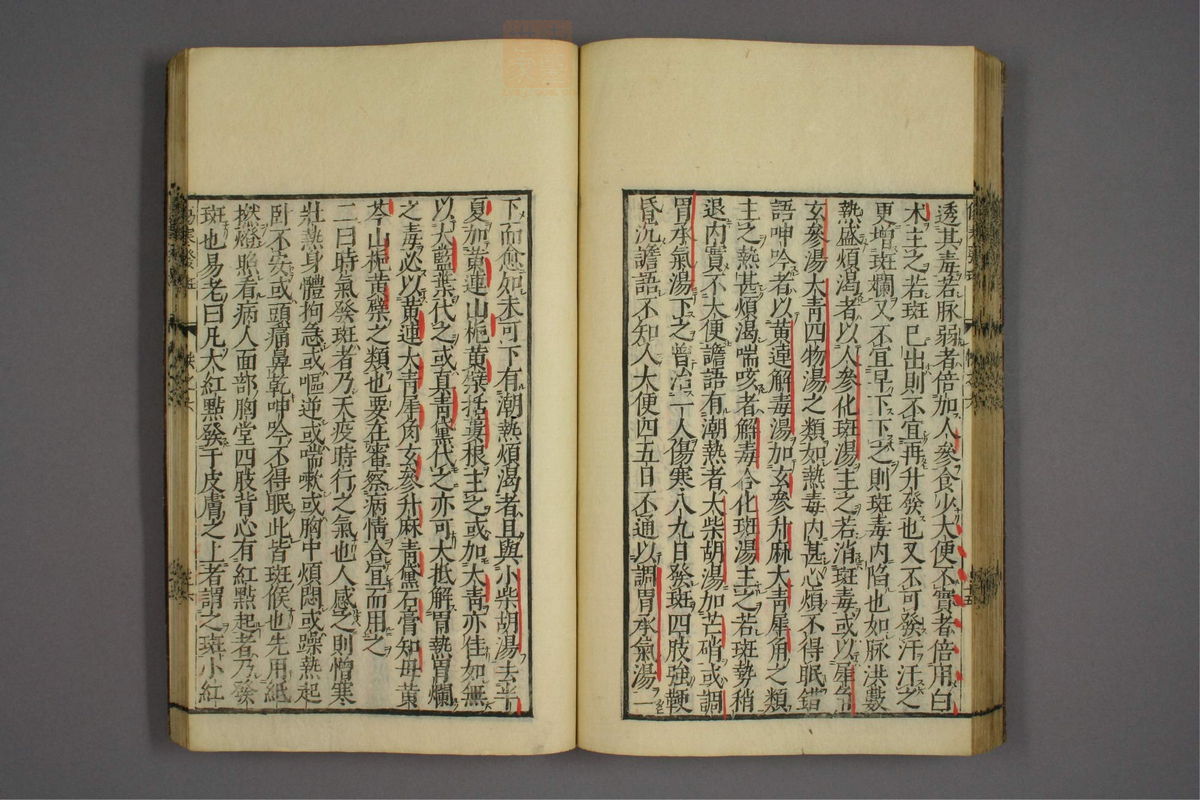 透其毒若脉弱者倍加人參食少大便不實者倍用白
术主之若斑已出則不宜再升發也又不可發汗汗之
更增斑爛又不宜早下下之則斑毒內陷也如脉洪數
熱盛煩渴者以人參化斑湯主之若消斑毒或以犀角
玄參湯大青四物湯之類如熱毒內甚心煩不得眠錯
語呻吟者以黃連解毒湯加玄參升麻大青犀角之類
主之熱甚煩渴喘咳者解毒合化斑湯主之若斑勢稍
退內實不大便譫語有潮熱者大柴胡湯加芒硝或調
胃承氣湯下之曾治一人傷寒八九日發斑四肢強硬
昏沉譫語不知人大便四五日不通以調胃承氣湯一
下而愈如未可下有潮熱煩渴者且與小柴胡湯去半
夏加黃連山梔黃檗栝蔞根主之或加大青亦佳如無
以大藍葉代之或真青黛代之亦可大抵解胃熱胃爛
之毒必以黃連大青犀角玄參升麻青黛石膏知母黃
芩山梔黃檗之類也要在審察病情合宜而用之
二曰時氣發斑者乃天疫時行之氣也人感之則憎寒
壯熱身體拘急或嘔逆或喘嗽或胸中煩悶或躁熱起
臥不安或頭痛鼻乾呻吟不得眠此皆斑候也先用紙
撚燈照看病人面部胸堂四肢背心有紅點起者乃發
斑也易老曰凡大紅點發于皮膚之上者謂之斑小紅